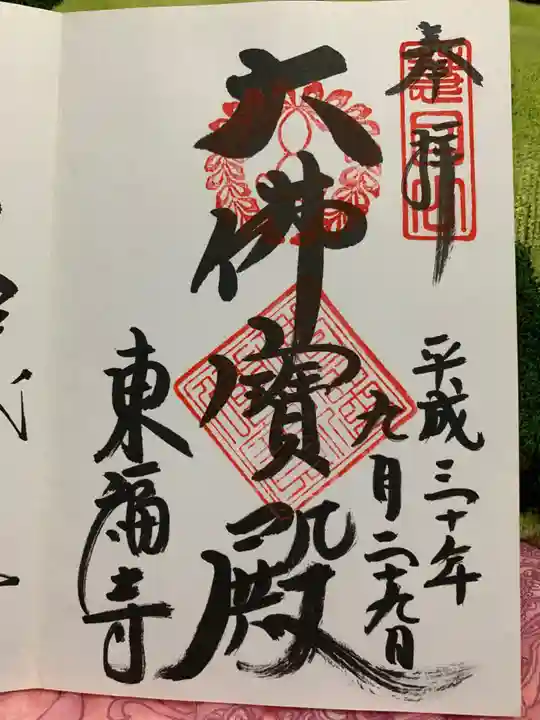 奉拝
平成三十年
九月二十九日
大佛寳殿
東福寺